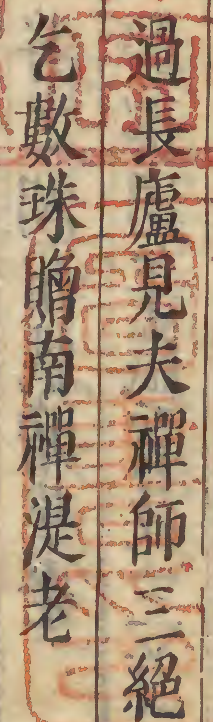 過長廬見夫禪師三絕
乞數珠贈南禪湜老